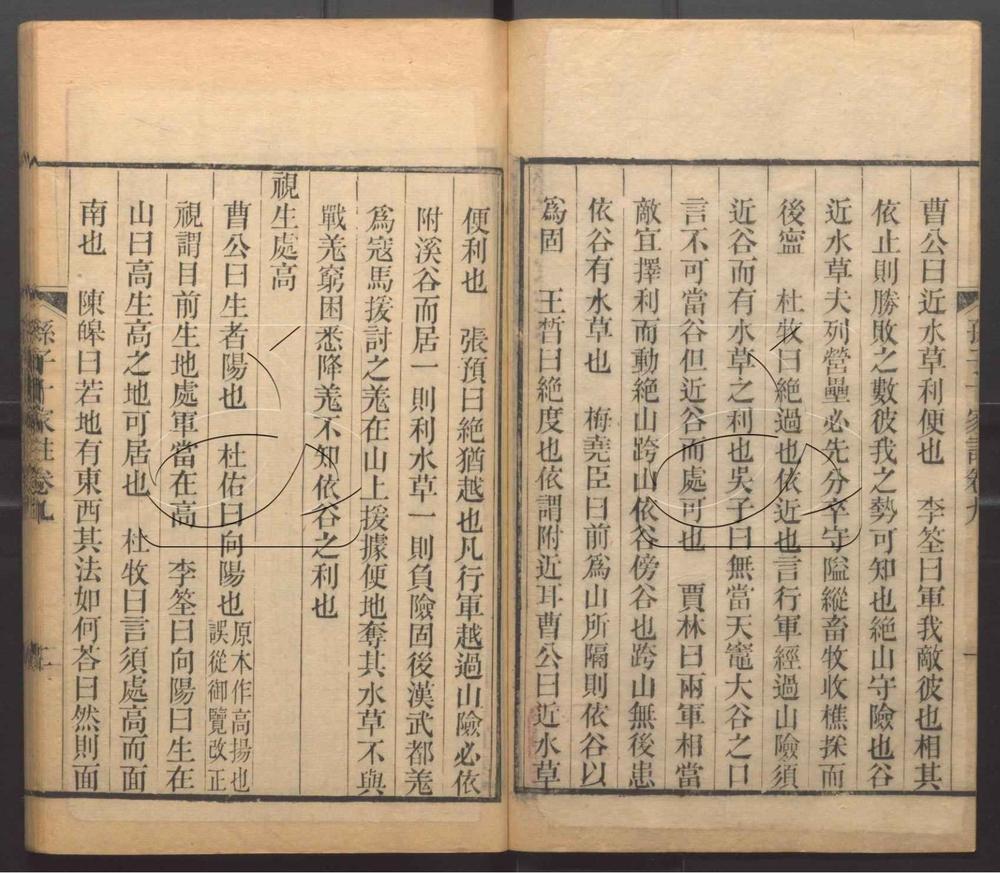 曹公曰近水草利便也　李筌曰軍我敵彼也相其
依止則勝敗之數彼我之勢可知也絶山守險也谷
近水草夫列營壘必先分卒守隘縱畜牧收樵採而
後寍　杜牧曰絶過也依近也言行軍經過山險須
近谷而有水草之利也吳子曰無當天竈大谷之口
言不可當谷但近谷而處可也　賈林曰兩軍相當
敵宜擇利而動絶山跨山依谷傍谷也跨山無後患
依谷有水草也　梅堯臣曰前爲山所隔則依谷以
爲固　王晳曰絶度也依謂附近耳曹公曰近水草
便利也　張預曰絶猶越也凡行軍越過山險必依
附溪谷而居一則利水草一則負險固後漢武都羗
爲寇馬援討之羗在山上援據便地奪其水草不與
戰羗窮困悉降羗不知依谷之利也
視生處高
曹公曰生者陽也　杜佑曰向陽也原本作高揚也誤從御覽改正
視謂目前生地處軍當在高　李筌曰向陽曰生在
山曰高生高之地可居也　杜牧曰言須處高而面
南也　陳皥曰若地有東西其法如何荅曰然則面
孫子十家註卷九